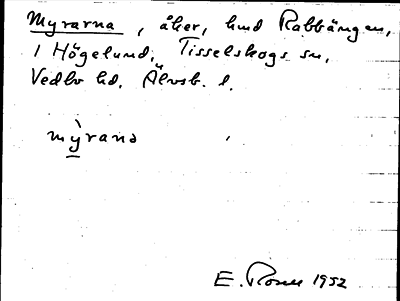 Myrarna, åker, hmd Rabbängen,
1 Högelund, Tisselskogs sn,
Vedbo hd. Älvsb. l.
mỳrana
E. Rosen 1952